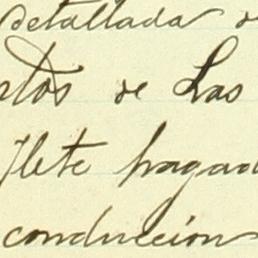 detallada d
rtos de Las
flete pagad
conduccion